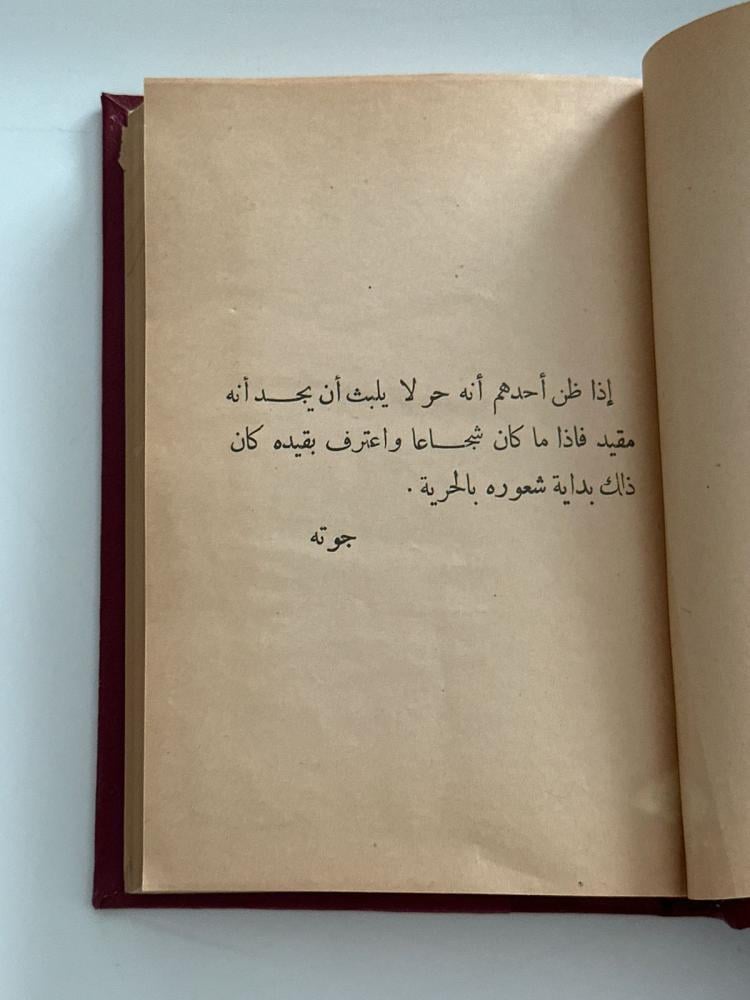 إذا ظن أحدهم أنه حر لا يلبث أن يجـــد أنه
مقيد فاذا ما كان شجـــاعا واعترف بقيده كان
ذلك بداية شعوره بالحرية .
جوته